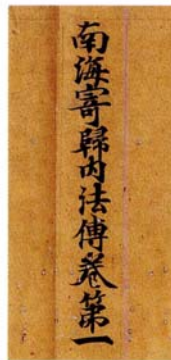 南海寄歸内法傳卷第一